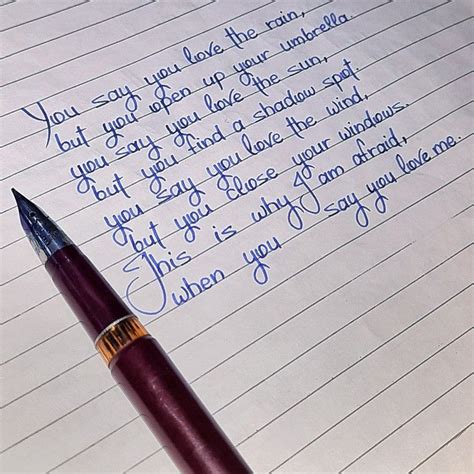 You say you love the rain,
but you open up your umbrella.
you say you love the sun,
but you find a shadow spot.
you say you love the wind,
but you close your windows.
This is why I am afraid,
when you say you love me.